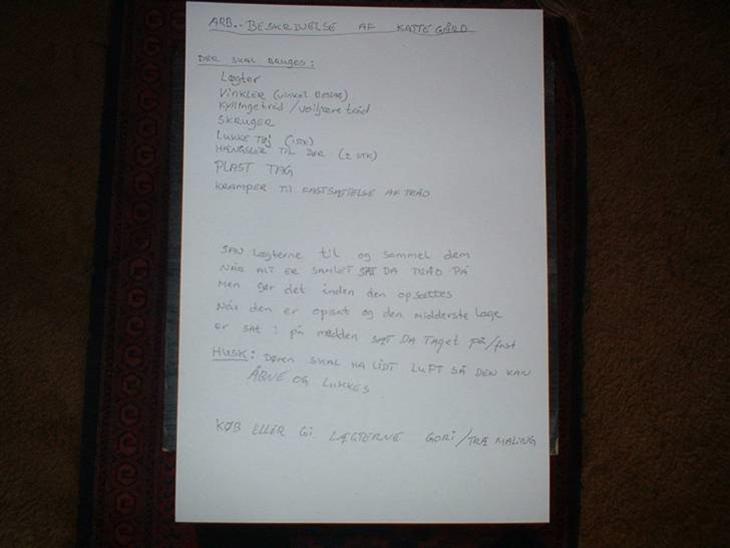 ARB.- BESKRIVELSE AF KATTEGÅRD
DER SKAL BRUGES:
Lægter
VINKLER (vinkel BESLAG)
Kyllingetråd / voliere tråd
SKRUER
LUKKE TØJ (1 STK)
HÆNGSLER TIL DØR (2 STK)
PLAST TAG
KRAMPER TIL FASTSÆTTELSE AF TRÅD
SAV Lægterne til og sammel dem
NÅR ALT ER SAMLET SÆT DA TRÅD PÅ
Men gør det inden den opsættes
Når den er opsat og den midderste
er sat i på midden SÆT DA Taget på/fast
HUSK: Døren SKAL HA LIDT LUFT SÅ DEN KAN
ÅBNE OG LUKKES
KØB ELLER Gi LÆGTERNE GORI/TRÆ MALING